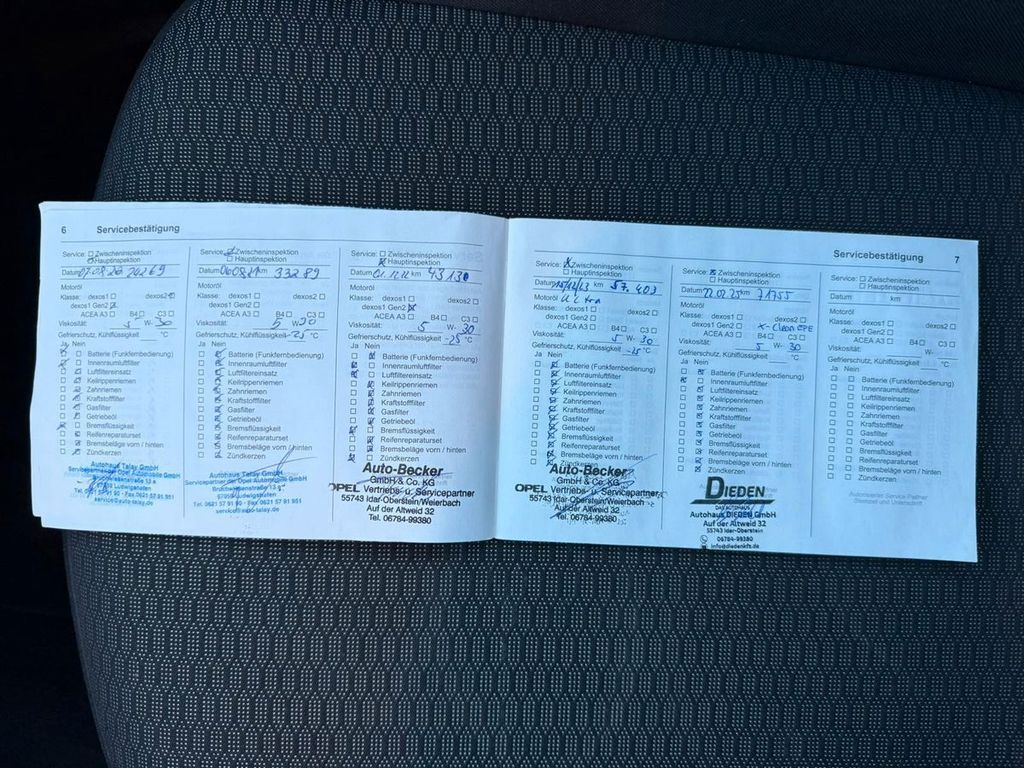 6 Servicebestätigung
Service: Zwischeninspektion
Hauptinspektion
Datum 07.08.20 20269
Motoröl
Klasse: dexos1 dexos2
dexos1 Gen2
ACEA A3 B4 C3
Viskosität: 5 W- 30
Gefrierschutz, Kühlflüssigkeit °C
Ja Nein
Batterie (Funkfernbedienung)
Innenraumluftfilter
Luftfiltereinsatz
Keilrippenriemen
Zahnriemen
Kraftstofffilter
Gasfilter
Getriebeöl
Bremsflüssigkeit
Reifenreparaturset
Bremsbeläge vorn / hinten
Zündkerzen
Autohaus Talay GmbH
Servicepartner der Opel Automobile GmbH
67059 Ludwigshafen
Service: Zwischeninspektion
Hauptinspektion
Datum km 33289
Motoröl
Klasse: dexos1 dexos2
dexos1 Gen2
ACEA A3 B4 C3
Viskosität: 5 W- 30
Gefrierschutz, Kühlflüssigkeit -25 °C
Ja Nein
Batterie (Funkfernbedienung)
Innenraumluftfilter
Luftfiltereinsatz
Keilrippenriemen
Zahnriemen
Kraftstofffilter
Gasfilter
Getriebeöl
Bremsflüssigkeit
Reifenreparaturset
Bremsbeläge vorn / hinten
Zündkerzen
Autohaus Talay GmbH
Servicepartner der Opel Automobile GmbH
67059 Ludwigshafen
Tel. 0621 57 91 90 - Fax 0621 57 91 951
Service: Zwischeninspektion
Hauptinspektion
Datum km 43130
Motoröl
Klasse: dexos1 dexos2
dexos1 Gen2
ACEA A3 B4 C3
Viskosität: 5 W- 30
Gefrierschutz, Kühlflüssigkeit -25 °C
Ja Nein
Batterie (Funkfernbedienung)
Innenraumluftfilter
Luftfiltereinsatz
Keilrippenriemen
Zahnriemen
Kraftstofffilter
Gasfilter
Getriebeöl
Bremsflüssigkeit
Reifenreparaturset
Bremsbeläge vorn / hinten
Zündkerzen
Auto-Becker
GmbH & Co. KG
OPEL Vertriebs- u. Servicepartner
55743 Idar-Oberstein/Weierbach
Auf der Altweid 32
Tel. 06784-99380
Servicebestätigung 7
Service: Zwischeninspektion
Hauptinspektion
Datum 15/12/23 km 57.403
Motoröl Ultra
Klasse: dexos1 dexos2
dexos1 Gen2
ACEA A3 B4 C3
Viskosität: 5 W- 30
Gefrierschutz, Kühlflüssigkeit -25 °C
Ja Nein
Batterie (Funkfernbedienung)
Innenraumluftfilter
Luftfiltereinsatz
Keilrippenriemen
Zahnriemen
Kraftstofffilter
Gasfilter
Getriebeöl
Bremsflüssigkeit
Reifenreparaturset
Bremsbeläge vorn / hinten
Zündkerzen
Auto-Becker
GmbH & Co. KG
OPEL Vertriebs- u. Servicepartner
55743 Idar-Oberstein/Weierbach
Auf der Altweid 32
Tel. 06784-99380
Service: Zwischeninspektion
Hauptinspektion
Datum km 71755
Motoröl
Klasse: dexos1 dexos2
dexos1 Gen2
ACEA A3 B4 C3
Viskosität: 5 W- 30
Gefrierschutz, Kühlflüssigkeit °C
Ja Nein
Batterie (Funkfernbedienung)
Innenraumluftfilter
Luftfiltereinsatz
Keilrippenriemen
Zahnriemen
Kraftstofffilter
Gasfilter
Getriebeöl
Bremsflüssigkeit
Reifenreparaturset
Bremsbeläge vorn / hinten
Zündkerzen
DIEDEN
DAS AUTOHAUS
Autohaus DIEDEN GmbH
Auf der Altweid 32
55743 Idar-Oberstein
06784-99380
Service: Zwischeninspektion
Hauptinspektion
Datum km
Motoröl
Klasse: dexos1 dexos2
dexos1 Gen2
ACEA A3 B4 C3
Viskosität: W-
Gefrierschutz, Kühlflüssigkeit °C
Ja Nein
Batterie (Funkfernbedienung)
Innenraumluftfilter
Luftfiltereinsatz
Keilrippenriemen
Zahnriemen
Kraftstofffilter
Gasfilter
Getriebeöl
Bremsflüssigkeit
Reifenreparaturset
Bremsbeläge vorn / hinten
Zündkerzen
Autorisierter Service Partner
Stempel und Unterschrift